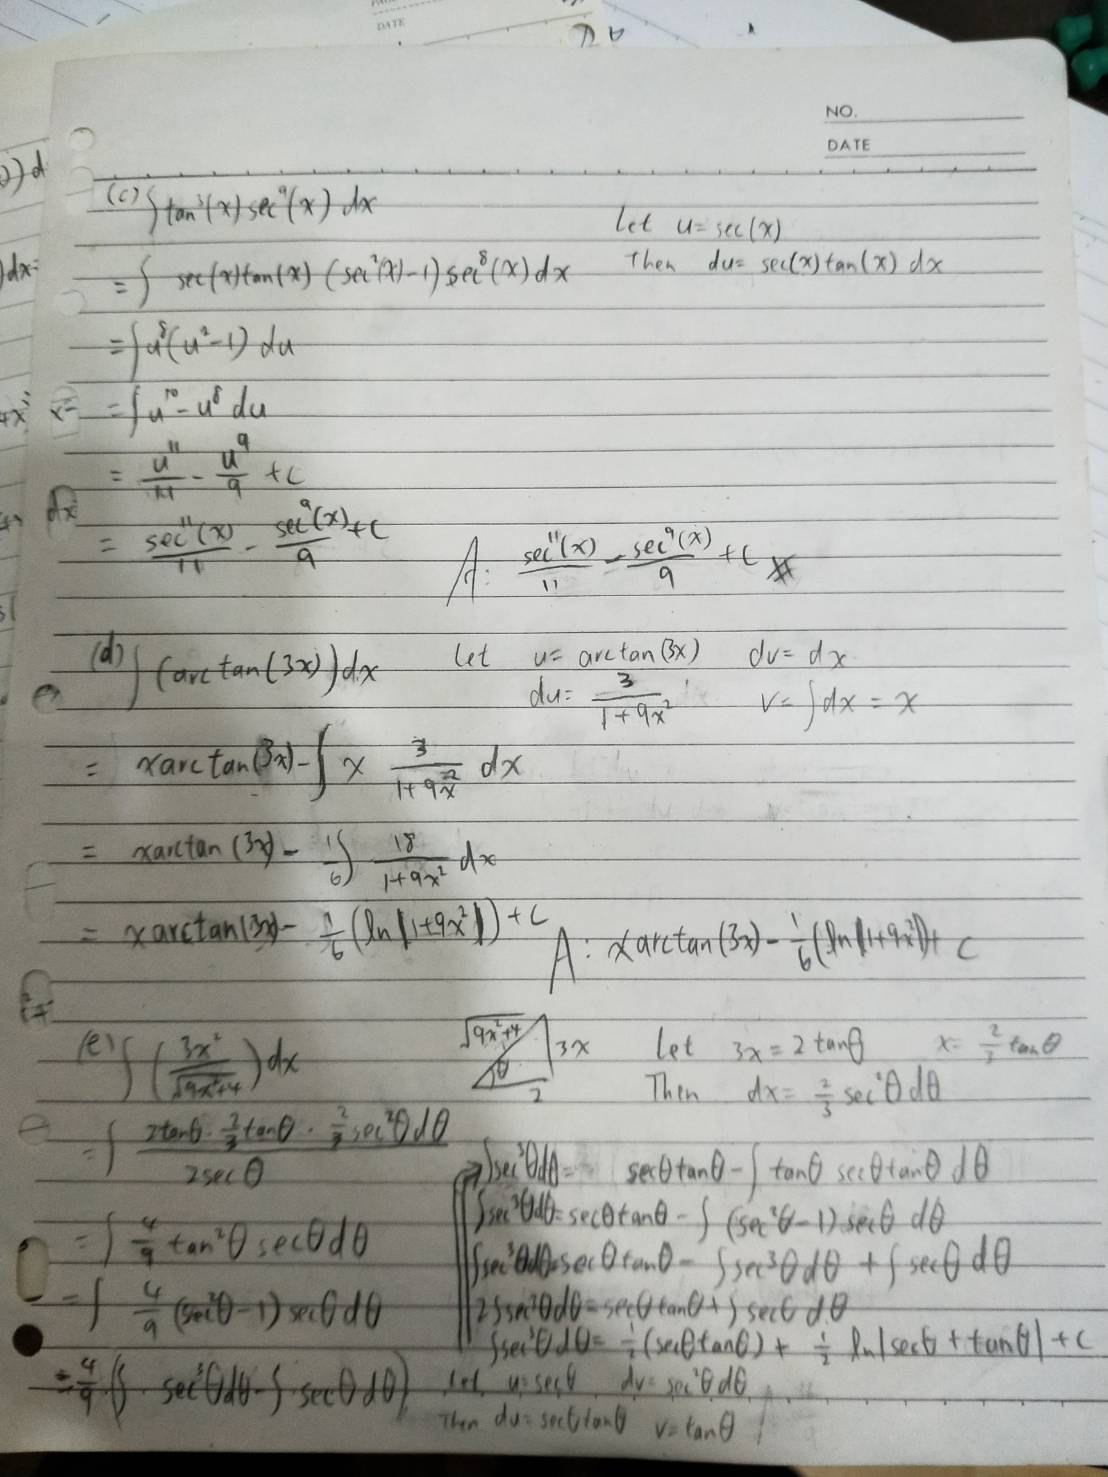 DATE
NO.
DATE
(c) ∫tan³(x) sec⁹(x) dx
Let u = sec(x)
= ∫ sec(x)tan(x) (sec²(x)-1) sec⁸(x) dx
Then du = sec(x)tan(x) dx
= ∫u⁸(u²-1) du
= ∫u¹⁰ - u⁸ du
= u¹¹/11 - u⁹/9 + C
= sec¹¹(x)/11 - sec⁹(x)/9 + C
A: sec¹¹(x)/11 - sec⁹(x)/9 + C
(d) ∫(arctan(3x))dx
Let u = arctan(3x) dv = dx
du = 3/(1+9x²) v = ∫dx = x
= xarctan(3x) - ∫ x 3/(1+9x²) dx
= xarctan(3x) - 1/6 ∫ 18/(1+9x²) dx
= xarctan(3x) - 1/6 (ln|1+9x²|) + C
A: xarctan(3x) - 1/6 (ln|1+9x²|) + C
(e) ∫(3x²/√9x²+4) dx
√9x²+4 3x θ 2
Let 3x = 2tanθ x = 2/3 tanθ
Then dx = 2/3 sec²θ dθ
= ∫ (2tanθ · 2/3 tanθ · 2/3 sec²θ dθ)/(2secθ)
= ∫ 4/9 tan²θ secθ dθ
= ∫ 4/9 (sec²θ-1) secθ dθ
= 4/9 (∫ sec³θdθ - ∫ secθ dθ)
∫sec³θdθ = secθtanθ - ∫ tanθ secθtanθ dθ
∫sec³θdθ = secθtanθ - ∫ (sec²θ-1) secθ dθ
∫sec³θdθ = secθtanθ - ∫sec³θdθ + ∫secθ dθ
2∫sec³θdθ = secθtanθ + ∫secθ dθ
∫sec³θdθ = 1/2 (secθtanθ) + 1/2 ln|secθ + tanθ| + C
Let u = secθ dv = sec²θ dθ
Then du = secθtanθ v = tanθ